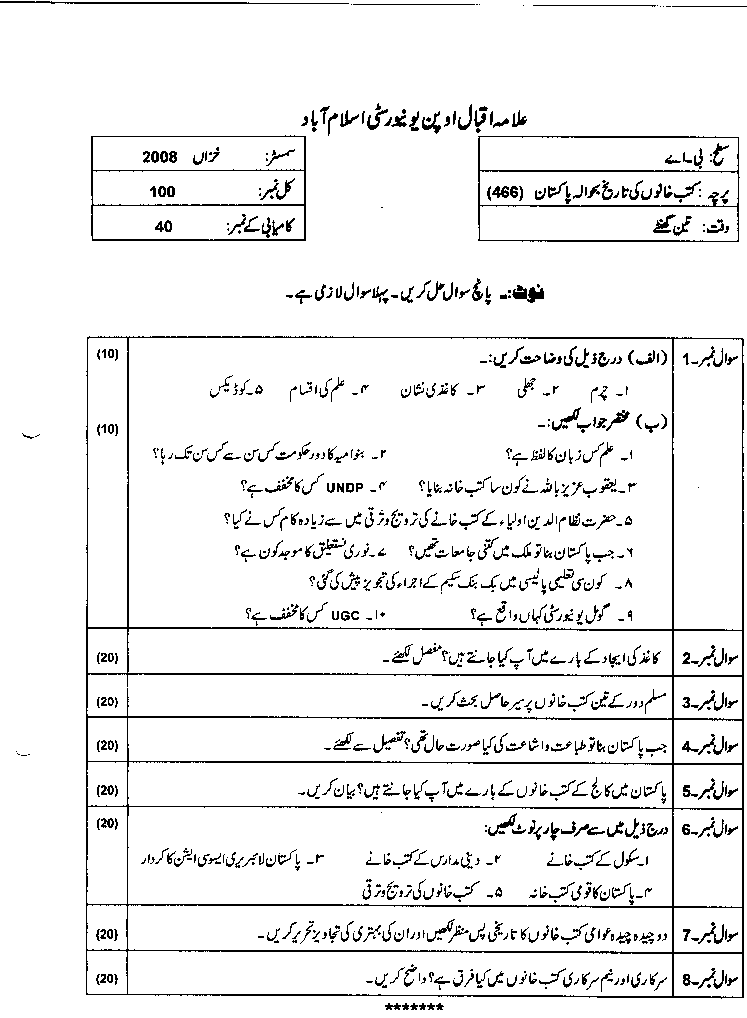 علامہ اقبال اوپن یونیورسٹی اسلام آباد
سطح: بی۔اے
سمسٹر: خزاں 2008
پرچہ: کتب خانوں کی تاریخ بحوالہ پاکستان (466)
کل نمبر: 100
وقت: تین گھنٹے
کامیابی کے نمبر: 40
نوٹ:۔ پانچ سوال حل کریں۔ پہلا سوال لازمی ہے۔
سوال نمبر۔1 (الف) درج ذیل کی وضاحت کریں:۔ (10)
۱۔ چرم ۲۔ جھلی ۳۔ کاغذی نشان ۴۔ علم کی اقسام ۵۔ کوڈیکس
(ب) مختصر جواب لکھیں:۔ (10)
۱۔ علم کس زبان کا لفظ ہے؟ ۲۔ بنوامیہ کا دور حکومت کس سن سے کس سن تک رہا؟
۳۔ یعقوب عزیز باللہ نے کون سا کتب خانہ بنایا؟ ۴۔ UNDP کس کا مخفف ہے؟
۵۔ حضرت نظام الدین اولیاء کے کتب خانے کی ترویج و ترقی میں سے زیادہ کام کس نے کیا؟
۶۔ جب پاکستان بنا تو ملک میں کتنی جامعات تھیں؟ ۷۔ نوری نستعلیق کا موجد کون ہے؟
۸۔ کون سی تعلیمی پالیسی میں بک بنک سکیم کے اجراء کی تجویز پیش کی گئی؟
۹۔ گومل یونیورسٹی کہاں واقع ہے؟ ۱۰۔ UGC کس کا مخفف ہے؟
سوال نمبر۔2 کاغذ کی ایجاد کے بارے میں آپ کیا جانتے ہیں؟ مفصل لکھئے۔ (20)
سوال نمبر۔3 مسلم دور کے تین کتب خانوں پر سیر حاصل بحث کریں۔ (20)
سوال نمبر۔4 جب پاکستان بنا تو طباعت و اشاعت کی کیا صورت حال تھی؟ تفصیل سے لکھئے۔ (20)
سوال نمبر۔5 پاکستان میں کالج کے کتب خانوں کے بارے میں آپ کیا جانتے ہیں؟ بیان کریں۔ (20)
سوال نمبر۔6 درج ذیل میں سے صرف چار پر نوٹ لکھیں: (20)
۱۔ سکول کے کتب خانے ۲۔ دینی مدارس کے کتب خانے ۳۔ پاکستان لائبریری ایسوسی ایشن کا کردار
۴۔ پاکستان کا قومی کتب خانہ ۵۔ کتب خانوں کی ترویج و ترقی
سوال نمبر۔7 دو چیدہ چیدہ عوامی کتب خانوں کا تاریخی پس منظر لکھیں اور ان کی بہتری کی تجاویز تحریر کریں۔ (20)
سوال نمبر۔8 سرکاری اور نیم سرکاری کتب خانوں میں کیا فرق ہے؟ واضح کریں۔ (20)
*******